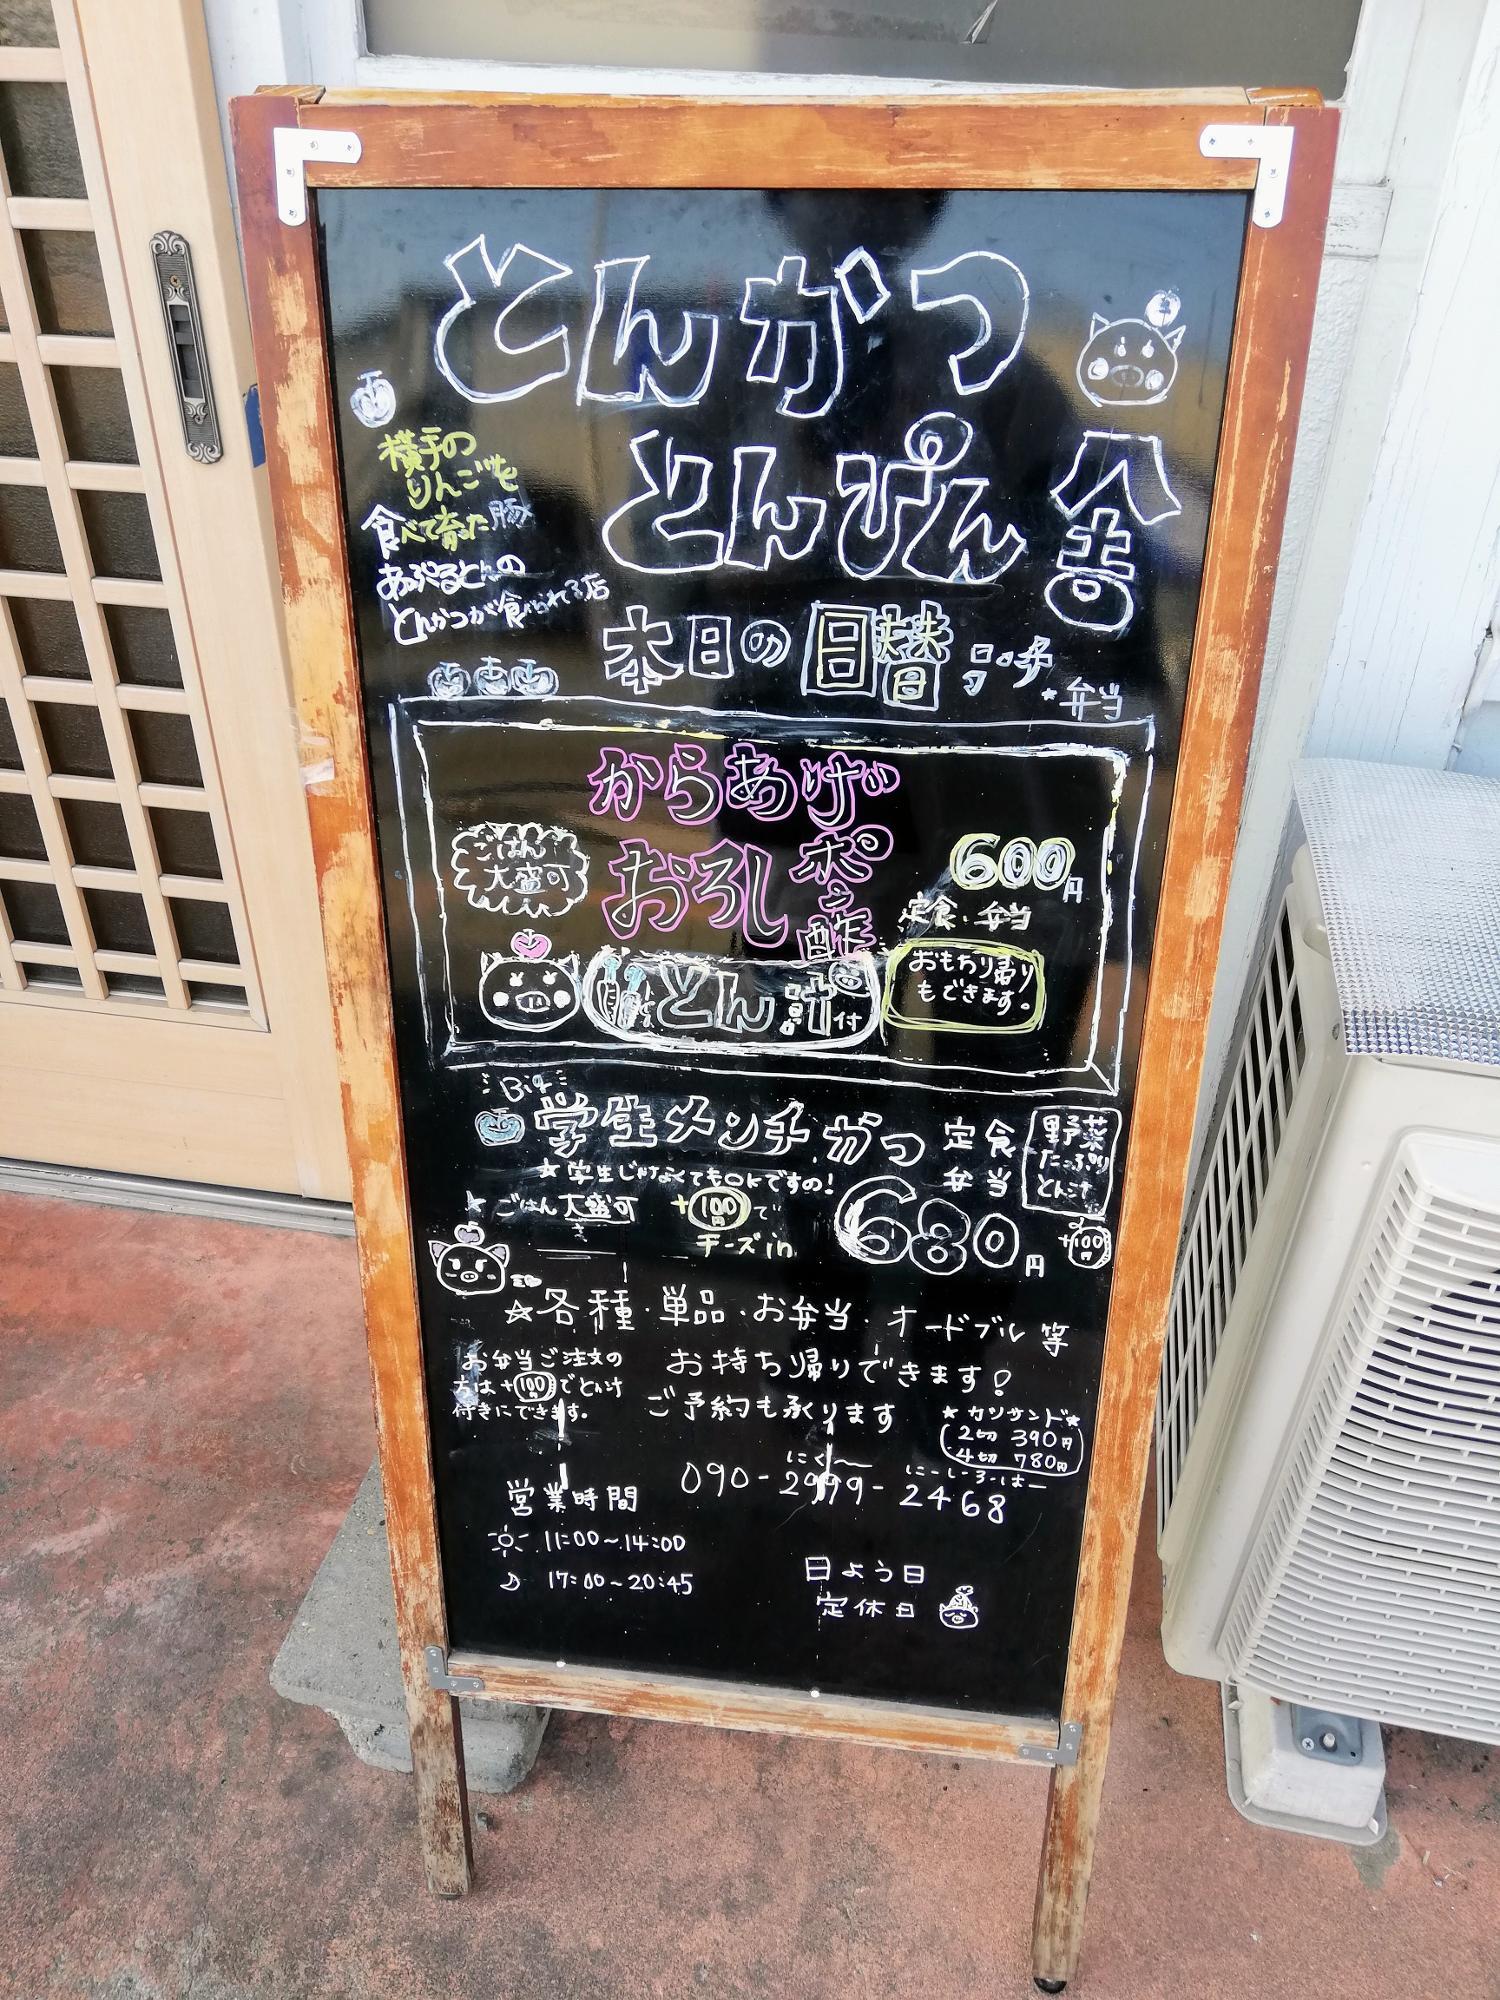 とんかつ
とんぴん舎
横手の
りんごを
食べて育った豚
あっぷるとんの
とんかつが食べられる店
本日の日替
弁当
からあげ
おろしポン酢
ごはん
大盛可
600円
定食・弁当
おもちり帰り
もできます。
とん汁付
Big
学生メンチガつ 定食
弁当
野菜
たっぷり
とん汁
★学生じゃなくてもOKですの!
★ごはん大盛可
+100円で
チーズin
680円
+100円
☆各種・単品・お弁当・オードブル 等
お持ち帰りできます!
ご予約も承ります
お弁当ご注文の
方は+100円でとん汁
付きにできます。
★カツサンド★
2切 390円
4切 780円
にく〜
にーしーろーはー
090-2999-2468
営業時間
11:00〜14:00
17:00〜20:45
日よう日
定休日